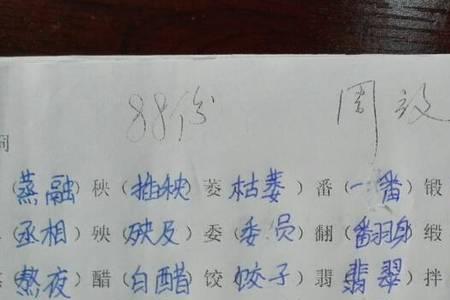 88份 周
(蒸融) 秧 (插秧) 萎 (枯萎) 番 (一番) 锻
(丞相) 殃 (殃及) 委 (委员) 翻 (翻身) 缎
(熬夜) 醋 (白醋) 饺 (饺子) 翡 (翡翠) 拌